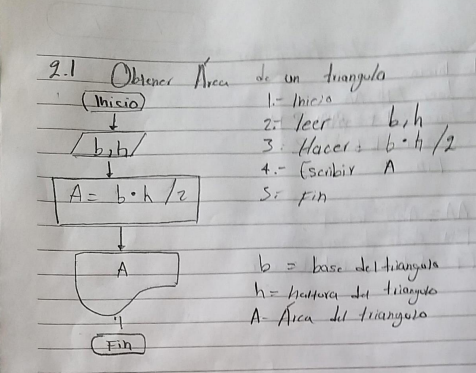 2.1 Obtener Área de un triangulo
Inicio
b,h
A = b·h/2
A
Fin
1.- Inicio
2.- leer b,h
3. Hacer = b·h/2
4.- Escribir A
5. Fin
b = base del triangulo
h = haltura del triangulo
A- Área del triangulo